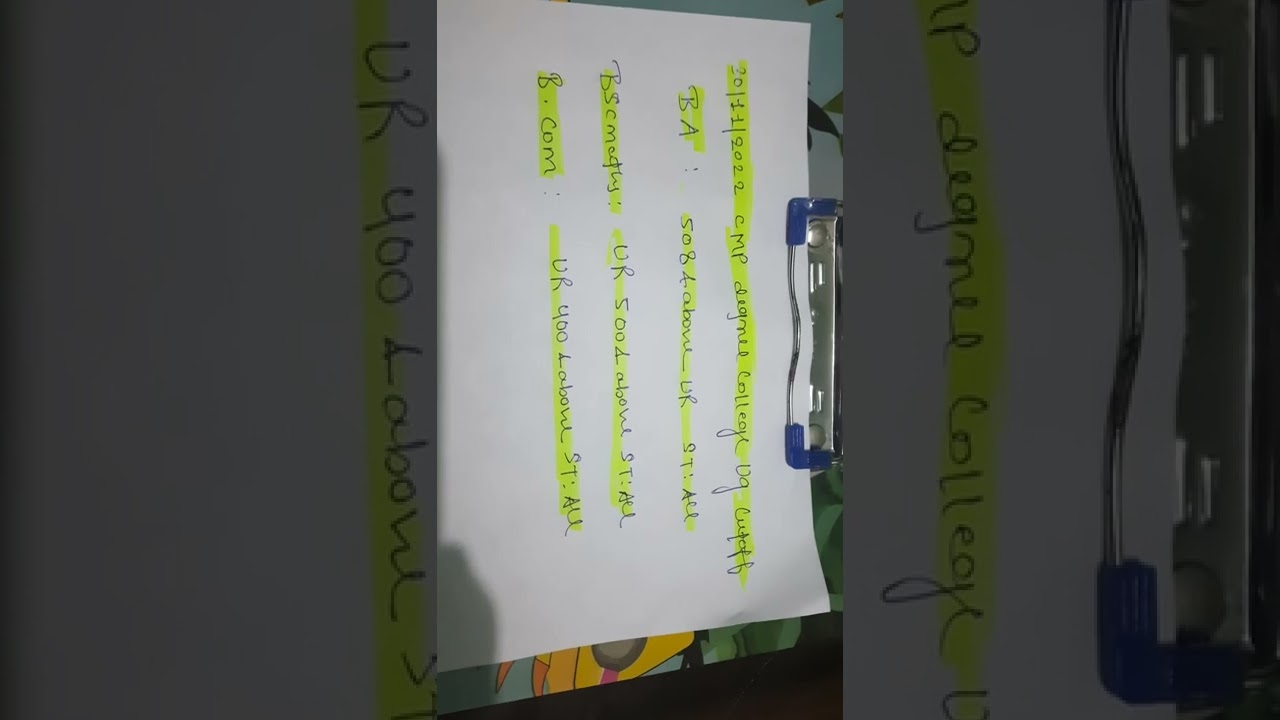 30/11/2022 CMP degree College Ug-Cutoff
BA : 508 & above UR ST: All
BSc maths: UR 500 & above ST: All
B.com : UR 400 & above ST: All